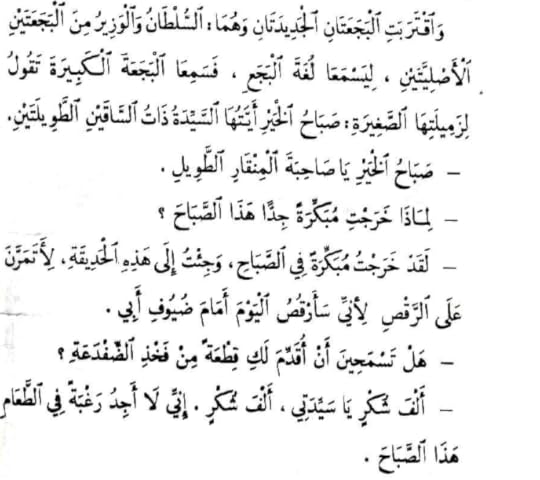 وَاقْتَرَبَتِ الْبَجَعَتَانِ الْجَدِيدَتَانِ وَهُمَا: السُّلْطَانُ وَالْوَزِيرُ مِنَ الْبَجَعَتَيْنِ
الْأَصْلِيَّتَيْنِ ، لِيَسْمَعَا لُغَةَ الْبَجَعِ ، فَسَمِعَا الْبَجَعَةَ الْكَبِيرَةَ تَقُولُ
لِزَمِيلَتِهَا الصَّغِيرَةِ: صَبَاحُ الْخَيْرِ أَيَّتُهَا السَّيِّدَةُ ذَاتُ السَّاقَيْنِ الطَّوِيلَتَيْنِ.
– صَبَاحُ الْخَيْرِ يَا صَاحِبَةَ الْمِنْقَارِ الطَّوِيلِ .
– لِمَاذَا خَرَجْتِ مُبَكِّرَةً جِدًّا هَذَا الصَّبَاحَ ؟
– لَقَدْ خَرَجْتُ مُبَكِّرَةً فِي الصَّبَاحِ، وَجِئْتُ إِلَى هَذِهِ الْحَدِيقَةِ، لِأَتَمَرَّنَ
عَلَى الرَّقْصِ لِأَنِّي سَأَرْقُصُ الْيَوْمَ أَمَامَ ضُيُوفِ أَبِي .
– هَلْ تَسْمَحِينَ أَنْ أُقَدِّمَ لَكِ قِطْعَةً مِنْ فَخْذِ الضِّفْدَعَةِ ؟
– أَلْفَ شُكْرٍ يَا سَيِّدَتِي ، أَلْفَ شُكْرٍ . إِنِّي لَا أَجِدُ رَغْبَةً فِي الطَّعَامِ
هَذَا الصَّبَاحَ .